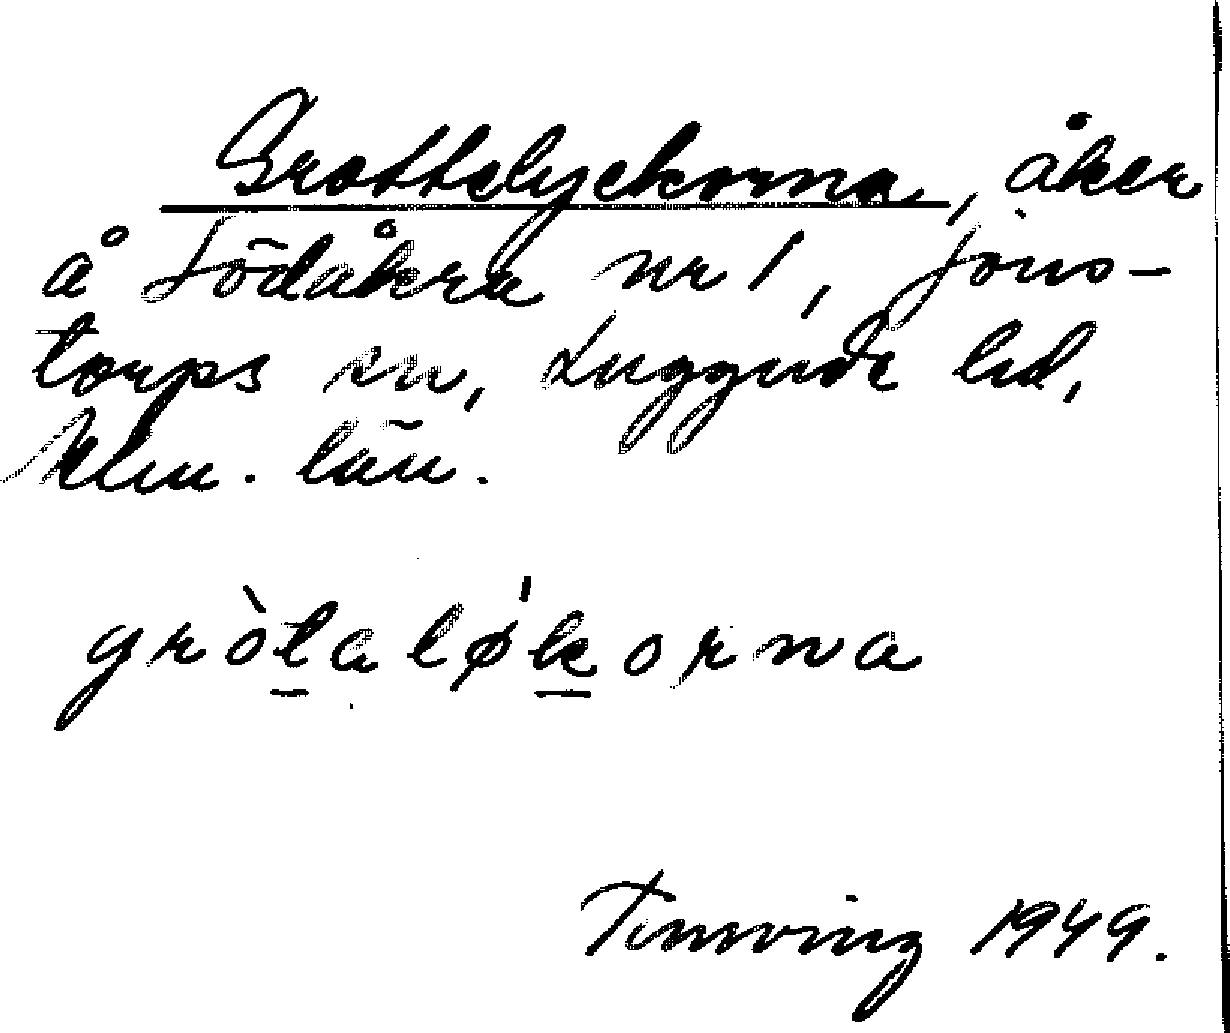 Grottelyckorna, åker
å Södåkra nr 1, Jons-
torps sn, Luggude hd,
Mlm. län.
gròtaløkorna
1949.